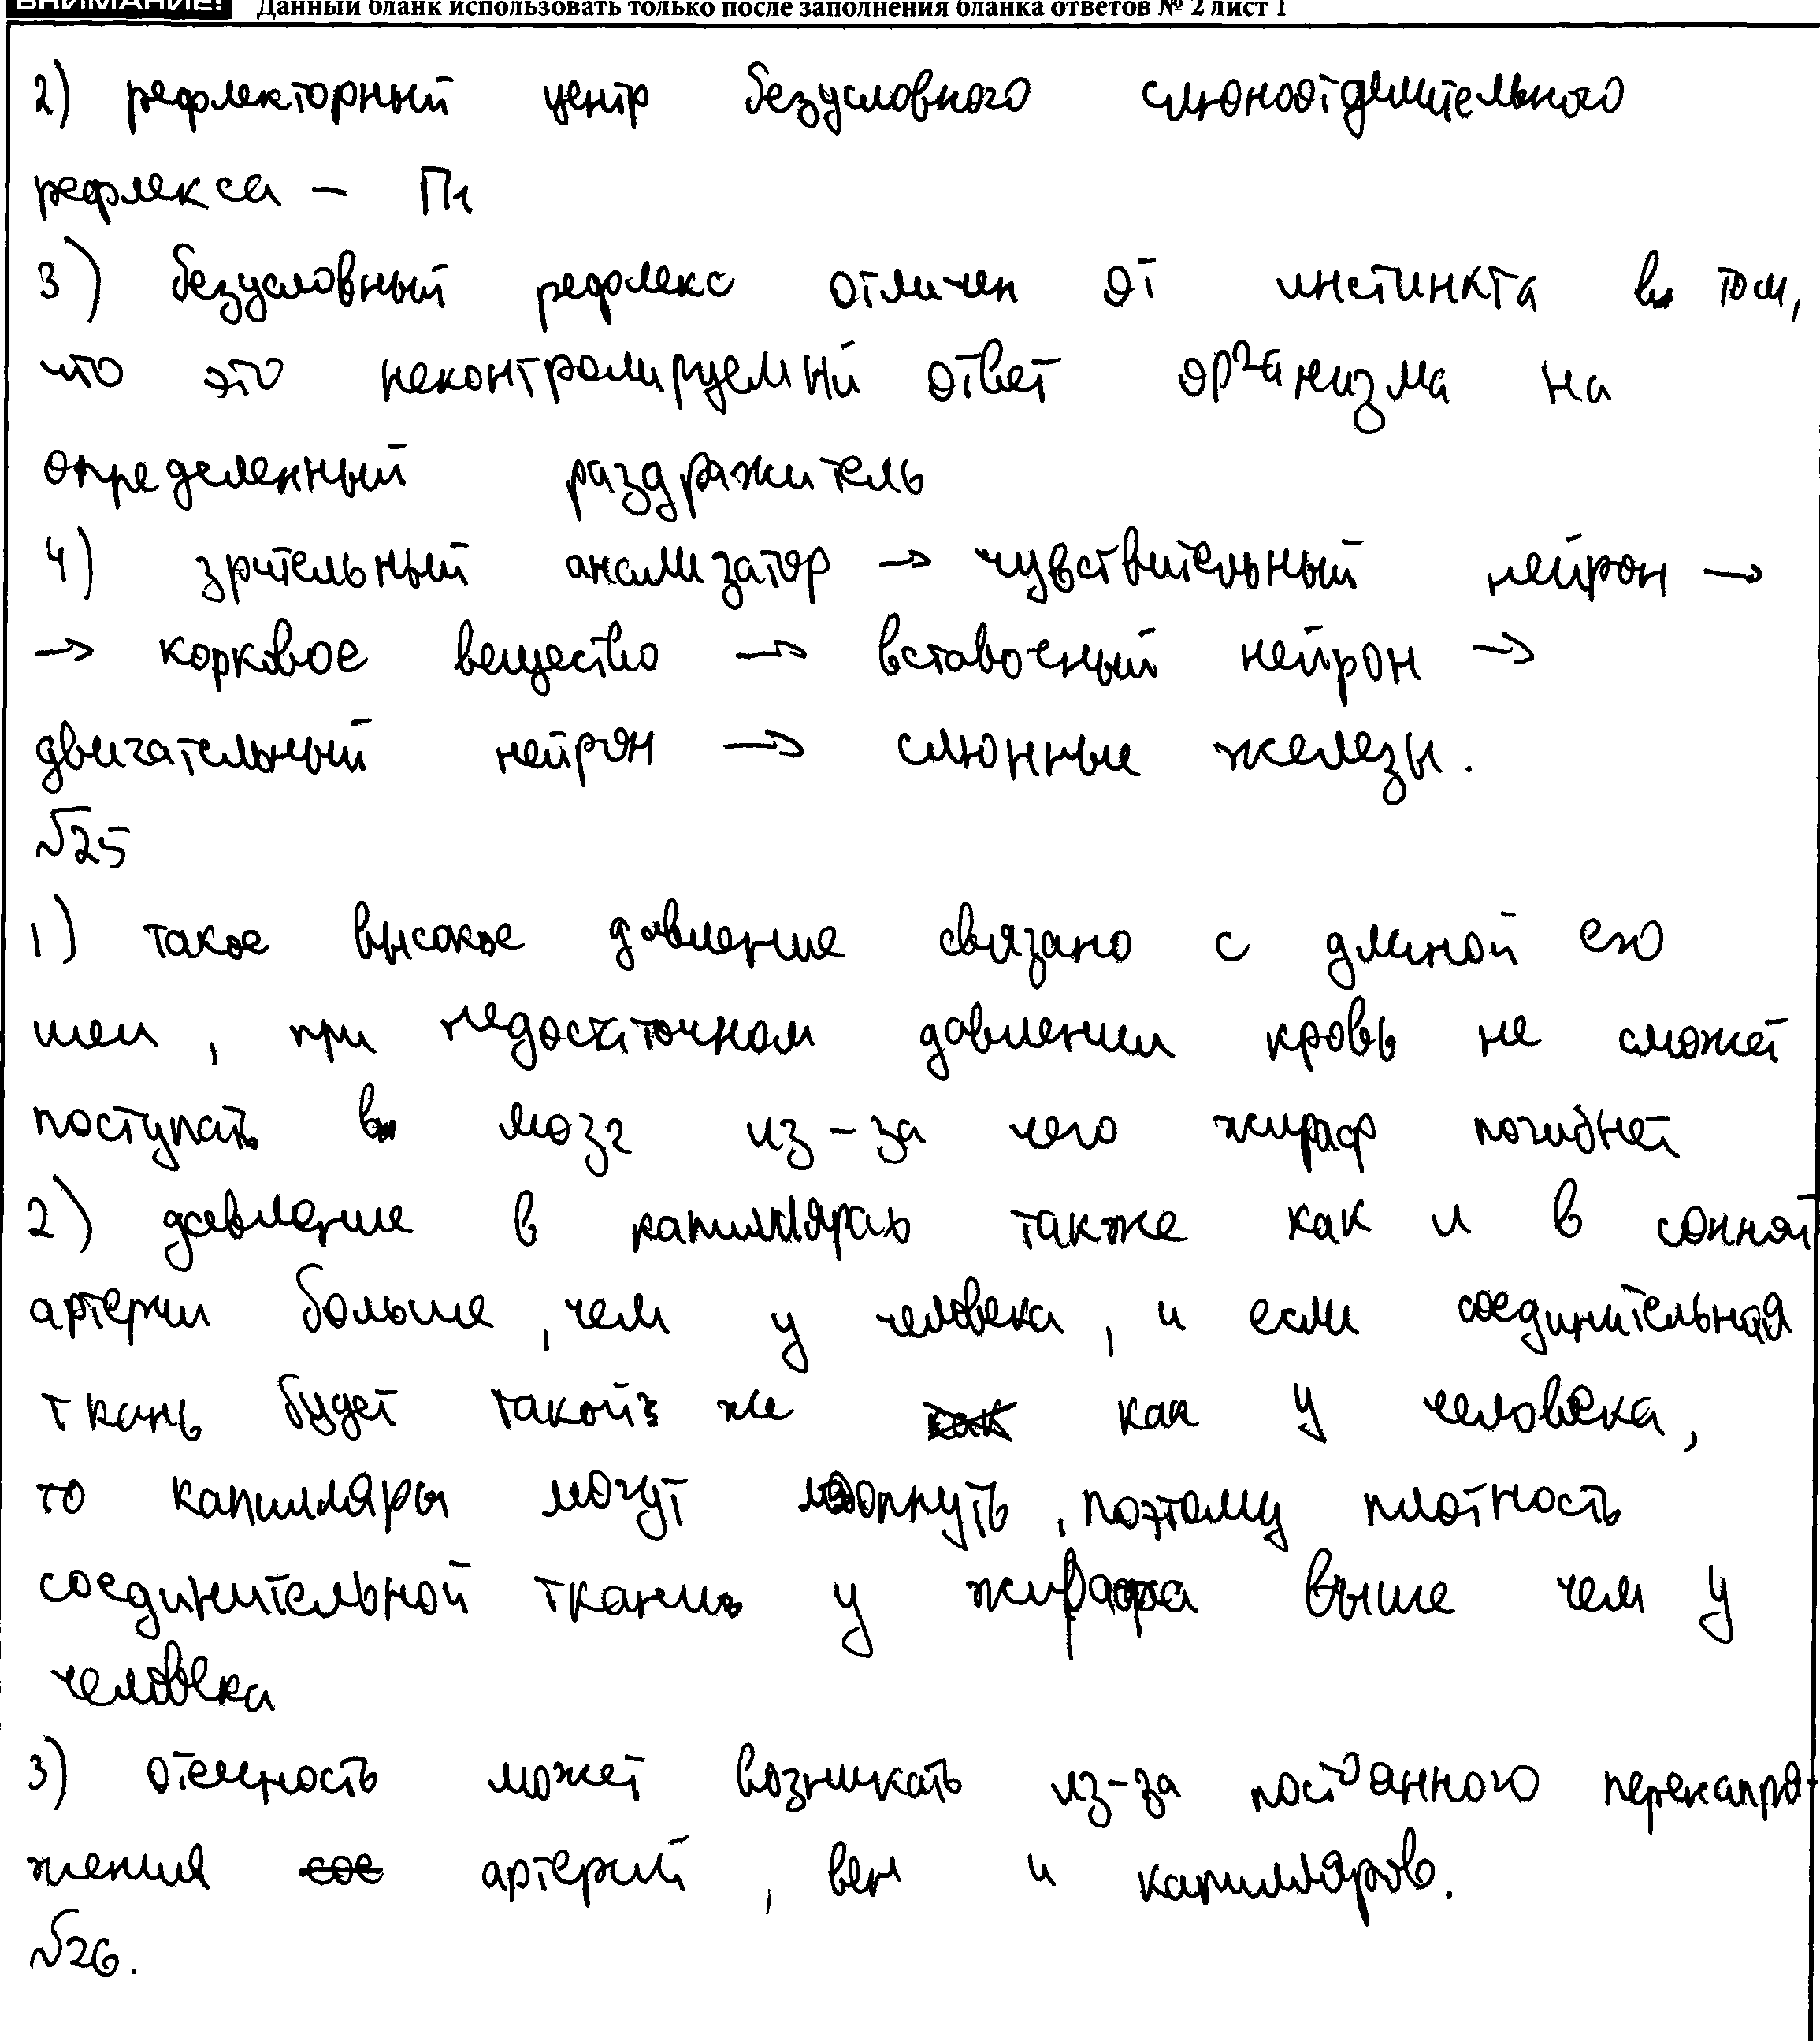 ВНИМАНИЕ! Данный бланк использовать только после заполнения бланка ответов № 2 лист 1
2) рефлекторный центр безусловного слюноотделительного
рефлекса – П1
3) безусловный рефлекс отличен от инстинкта в том,
что это неконтролируемый ответ организма на
определенный раздражитель
4) зрительный анализатор → чувствительный нейрон →
→ корковое вещество → вставочный нейрон →
двигательный нейрон → слюнные железы.
№25
1) такое высокое давление связано с длиной его
шеи, при недостаточном давлении кровь не сможет
поступать в мозг из-за чего жираф погибнет
2) давление в капиллярах также как и в сонной
артерии больше, чем у человека, и если соединительная
ткань будет такой же как у человека,
то капилляры могут лопнуть, поэтому плотность
соединительной ткани у жирафа выше чем у
человека
3) отечность может возникать из-за постоянного перенапря-
жения сое артерий, вен и капилляров.
№26.